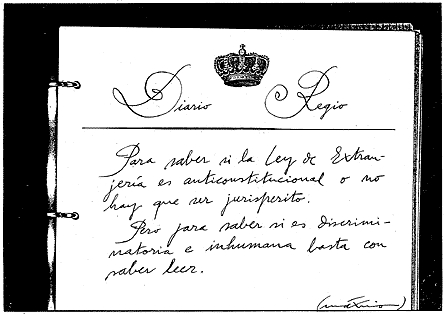 Diario Regio
Para saber si la Ley de Extran-
jería es anticonstitucional o no
hay que ser jurisperito.
Pero para saber si es discrimi-
natoria e inhumana basta con
saber leer.
(máximo)